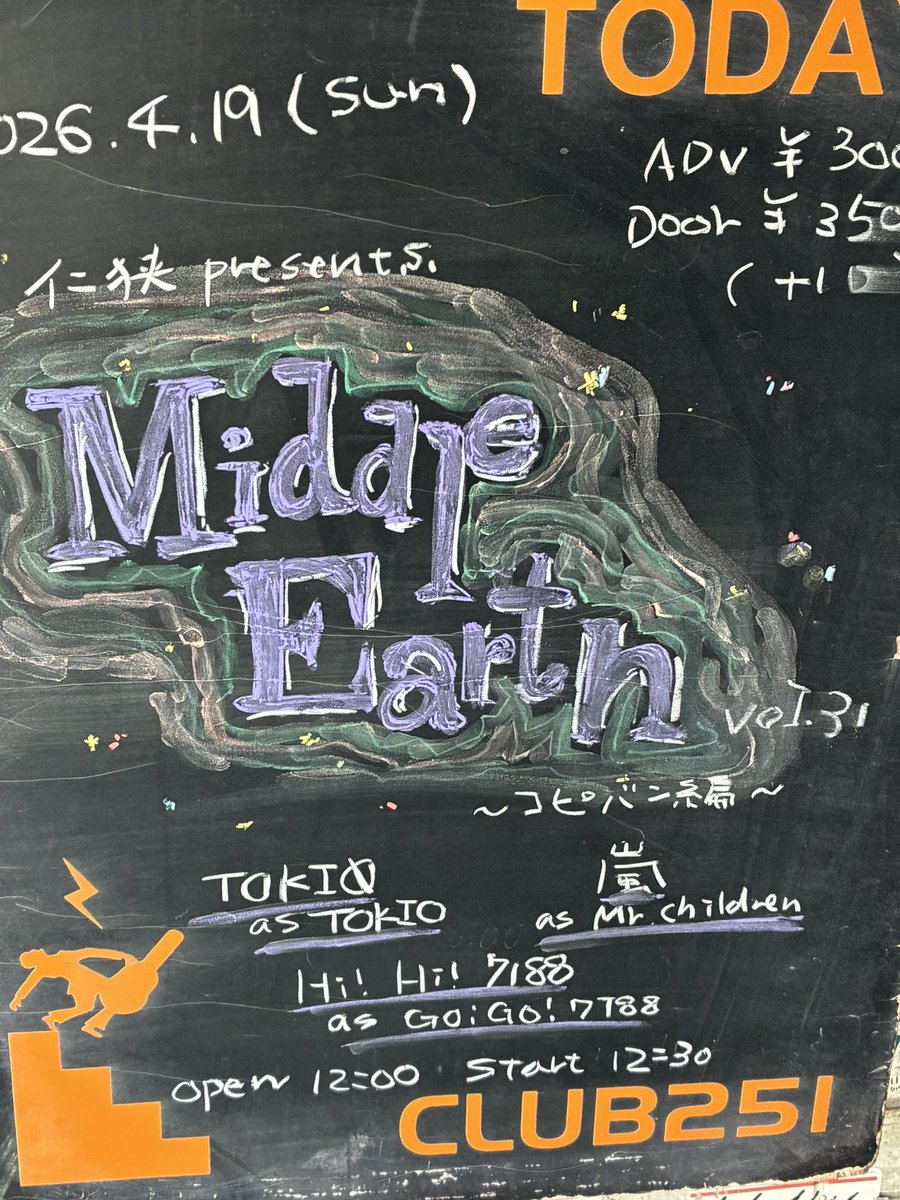 TODA
026.4.19 (sun)
ADV ¥300
Door ¥350
(+1
仁狭 presents.
Middle
Earth
vol.31
~コピバン編~
TOKIO
as TOKIO
嵐
as Mr.children
Hi! Hi! 7188
as GO!GO! 7188
open 12:00 start 12:30
CLUB251